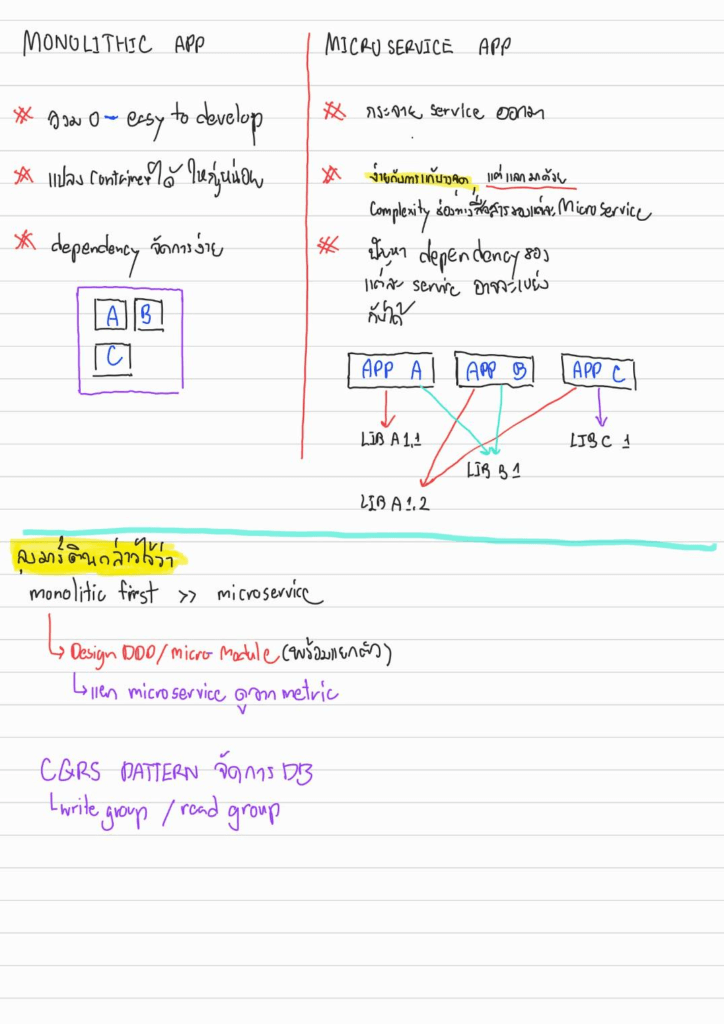 MONOLITHIC APP
รวม ๐ - easy to develop
แปลง container ได้ ใหญ่หน่อย
dependency จัดการง่าย
A B
C
MICROSERVICE APP
กระจาย service ออกมา
ง่ายกับการแก้บางจุด แต่แลกมาด้วย
Complexity ช่องทางสื่อสารของแต่ละ Microservice
ปัญหา dependency ของ
แต่ละ service อาจจะแย่ง
กันได้
APP A APP B APP C
LIB A 1.1
LIB C 1
LIB B 1
LIB A 1.2
ลุงมาร์ตินกล่าวไว้ว่า
monolitic first >> microservice
Design DDD / micro Module (พร้อมแยกตัว)
แยก microservice ดูจาก metric
CQRS PATTERN จัดการ DB
write group / read group